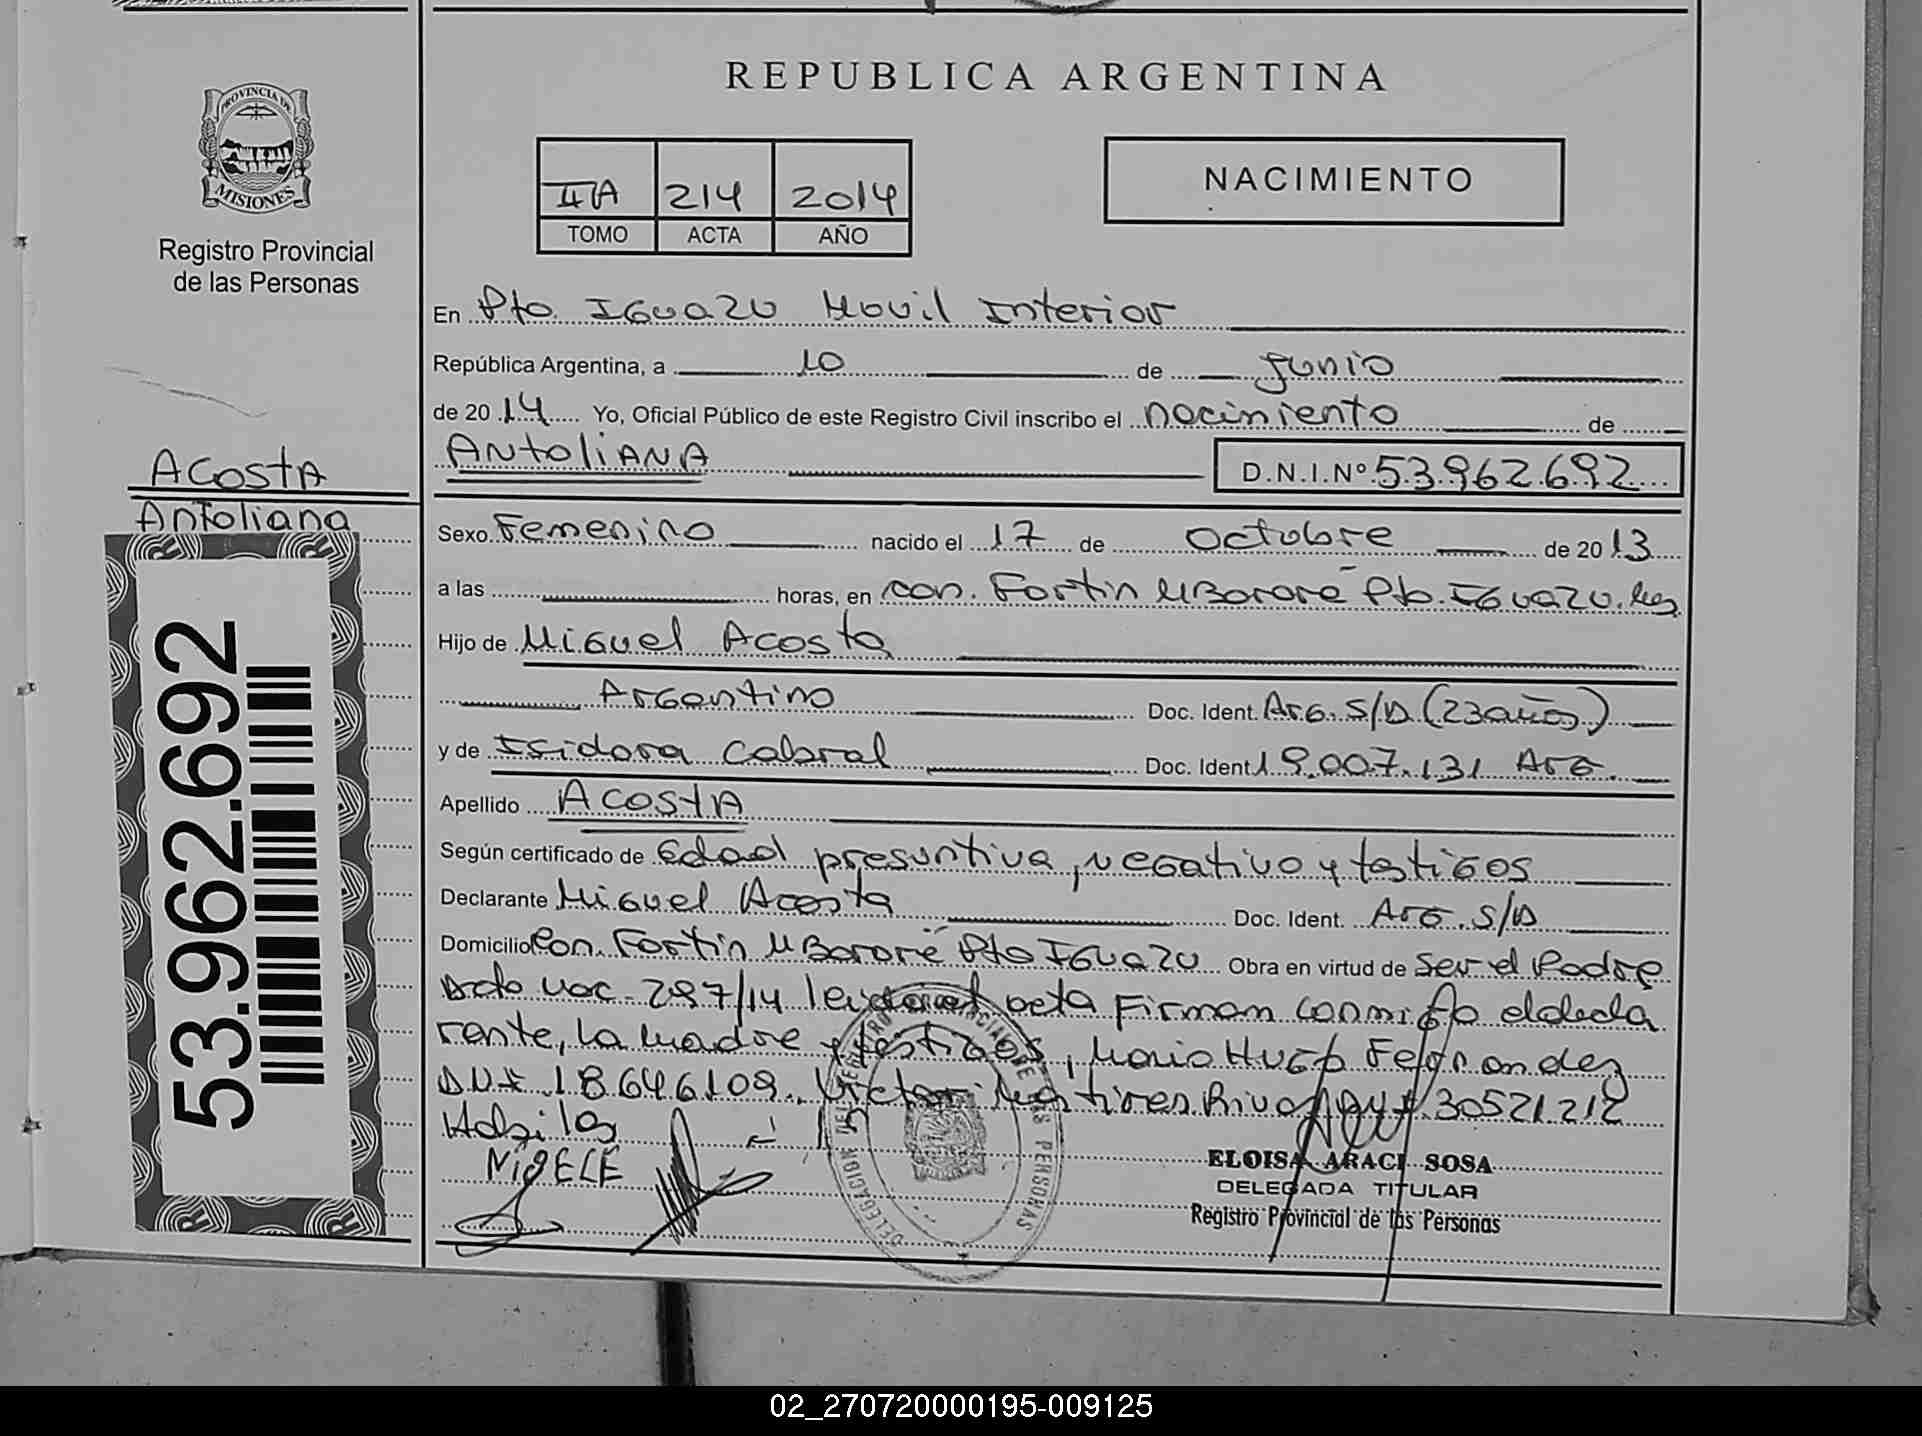 REPUBLICA ARGENTINA
PROVINCIA DE
MISIONES
Registro Provincial
de las Personas
IIA 214 2014
TOMO ACTA AÑO
NACIMIENTO
En Pto. Iguazu Movil Interior
República Argentina, a 10 de Junio
de 2014 Yo, Oficial Público de este Registro Civil inscribo el nacimiento de
Antoliana
D.N.I.Nº 53.962.692
Acosta
Antoliana
53.962.692
Sexo Femenino nacido el 17 de Octubre de 2013
a las horas, en con. Fortin MBororé Pto. Iguazu.
Hijo de Miguel Acosta
Argentino Doc. Ident. Arg. S/D (23 años)
y de Isidora Cabral Doc. Ident 19.007.131 Arg.
Apellido Acosta
Según certificado de Edad presuntiva, negativo y testigos
Declarante Miguel Acosta Doc. Ident. Arg. S/D
Domicilio Con. Fortin MBororé Pto Iguazu Obra en virtud de ser el Padre
Acto nac. 297/14 leida el acta Firman conmigo el decla
rante, la madre y testigos, Mario Hugo Fernandez
DNI 18646109 Victor DNI 30521212
MigELE
DELEGACION DEL REGISTRO PROVINCIAL DE LAS PERSONAS
ELOISA ARACI SOSA
DELEGADA TITULAR
Registro Provincial de las Personas
02_270720000195-009125